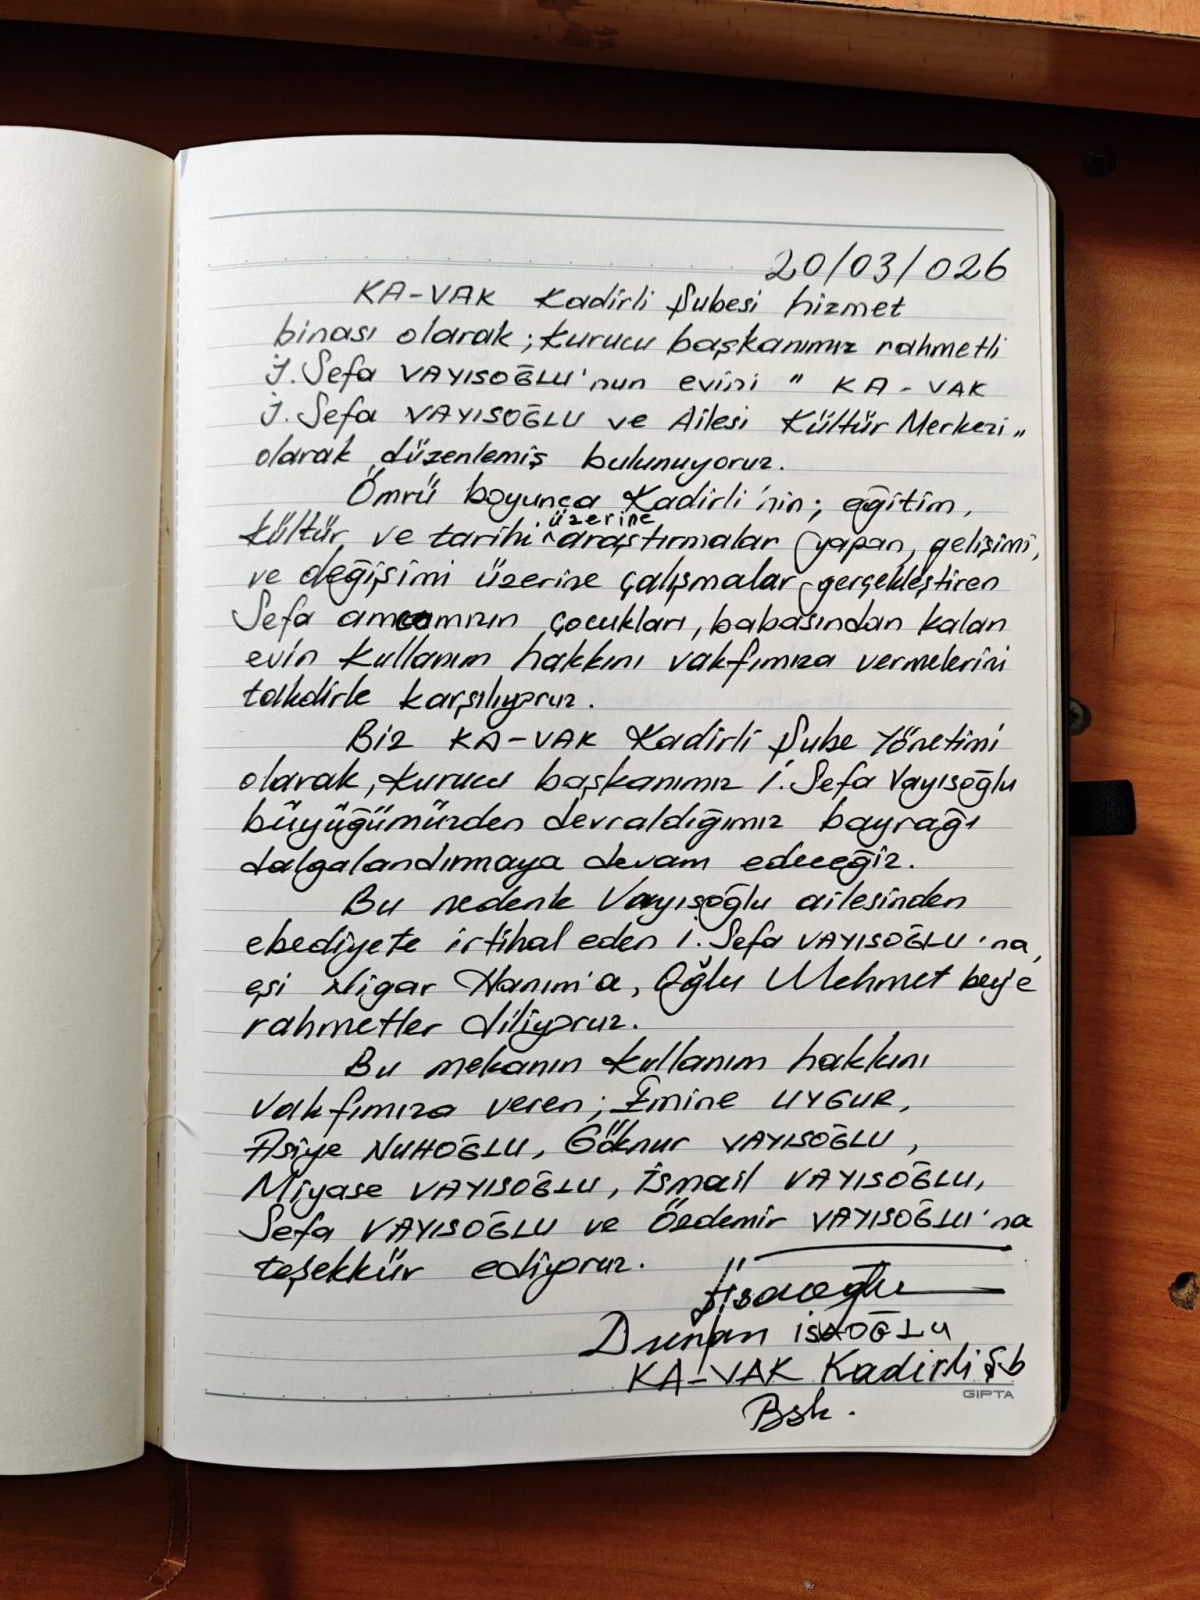 20/03/026
KA-VAK Kadirli Şubesi hizmet
binası olarak; kurucu başkanımız rahmetli
İ. Sefa VAYISOĞLU'nun evini " KA-VAK
İ. Sefa VAYISOĞLU ve Ailesi Kültür Merkezi "
olarak düzenlemiş bulunuyoruz.
Ömrü boyunca Kadirli'nin; eğitim,
kültür ve tarihi üzerine araştırmalar yapan, gelişimi,
ve değişimi üzerine çalışmalar gerçekleştiren
Sefa amcamızın çocukları, babasından kalan
evin kullanım hakkını vakfımıza vermelerini
takdirle karşılıyoruz.
Biz KA-VAK Kadirli Şube Yönetimi
olarak, kurucu başkanımız İ. Sefa Vayısoğlu
büyüğümüzden devraldığımız bayrağı
dalgalandırmaya devam edeceğiz.
Bu nedenle Vayısoğlu ailesinden
ebediyete irtihal eden İ. Sefa VAYISOĞLU'na,
eşi Nigar Hanım'a, Oğlu Mehmet bey'e
rahmetler diliyoruz.
Bu mekanın kullanım hakkını
vakfımıza veren; Emine UYGUR,
Asiye NUHOĞLU, Göknur VAYISOĞLU,
Miyase VAYISOĞLU, İsmail VAYISOĞLU,
Sefa VAYISOĞLU ve Özdemir VAYISOĞLU'na
teşekkür ediyoruz.
İSAOĞLU
KA-VAK Kadirli Şb
GIPTA
Bşk.